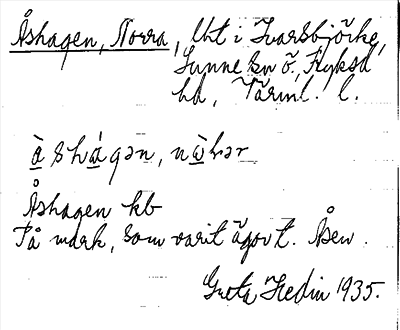 Åshagen, Norra, lht i Ivarsbjörke,
Sunne sn ö, Fryksd
hd, Värml. l.
å s h á gan, n ò rar
Åshagen kb
På mark, som varit ägovt. Åsen.
Greta Hedin 1935.